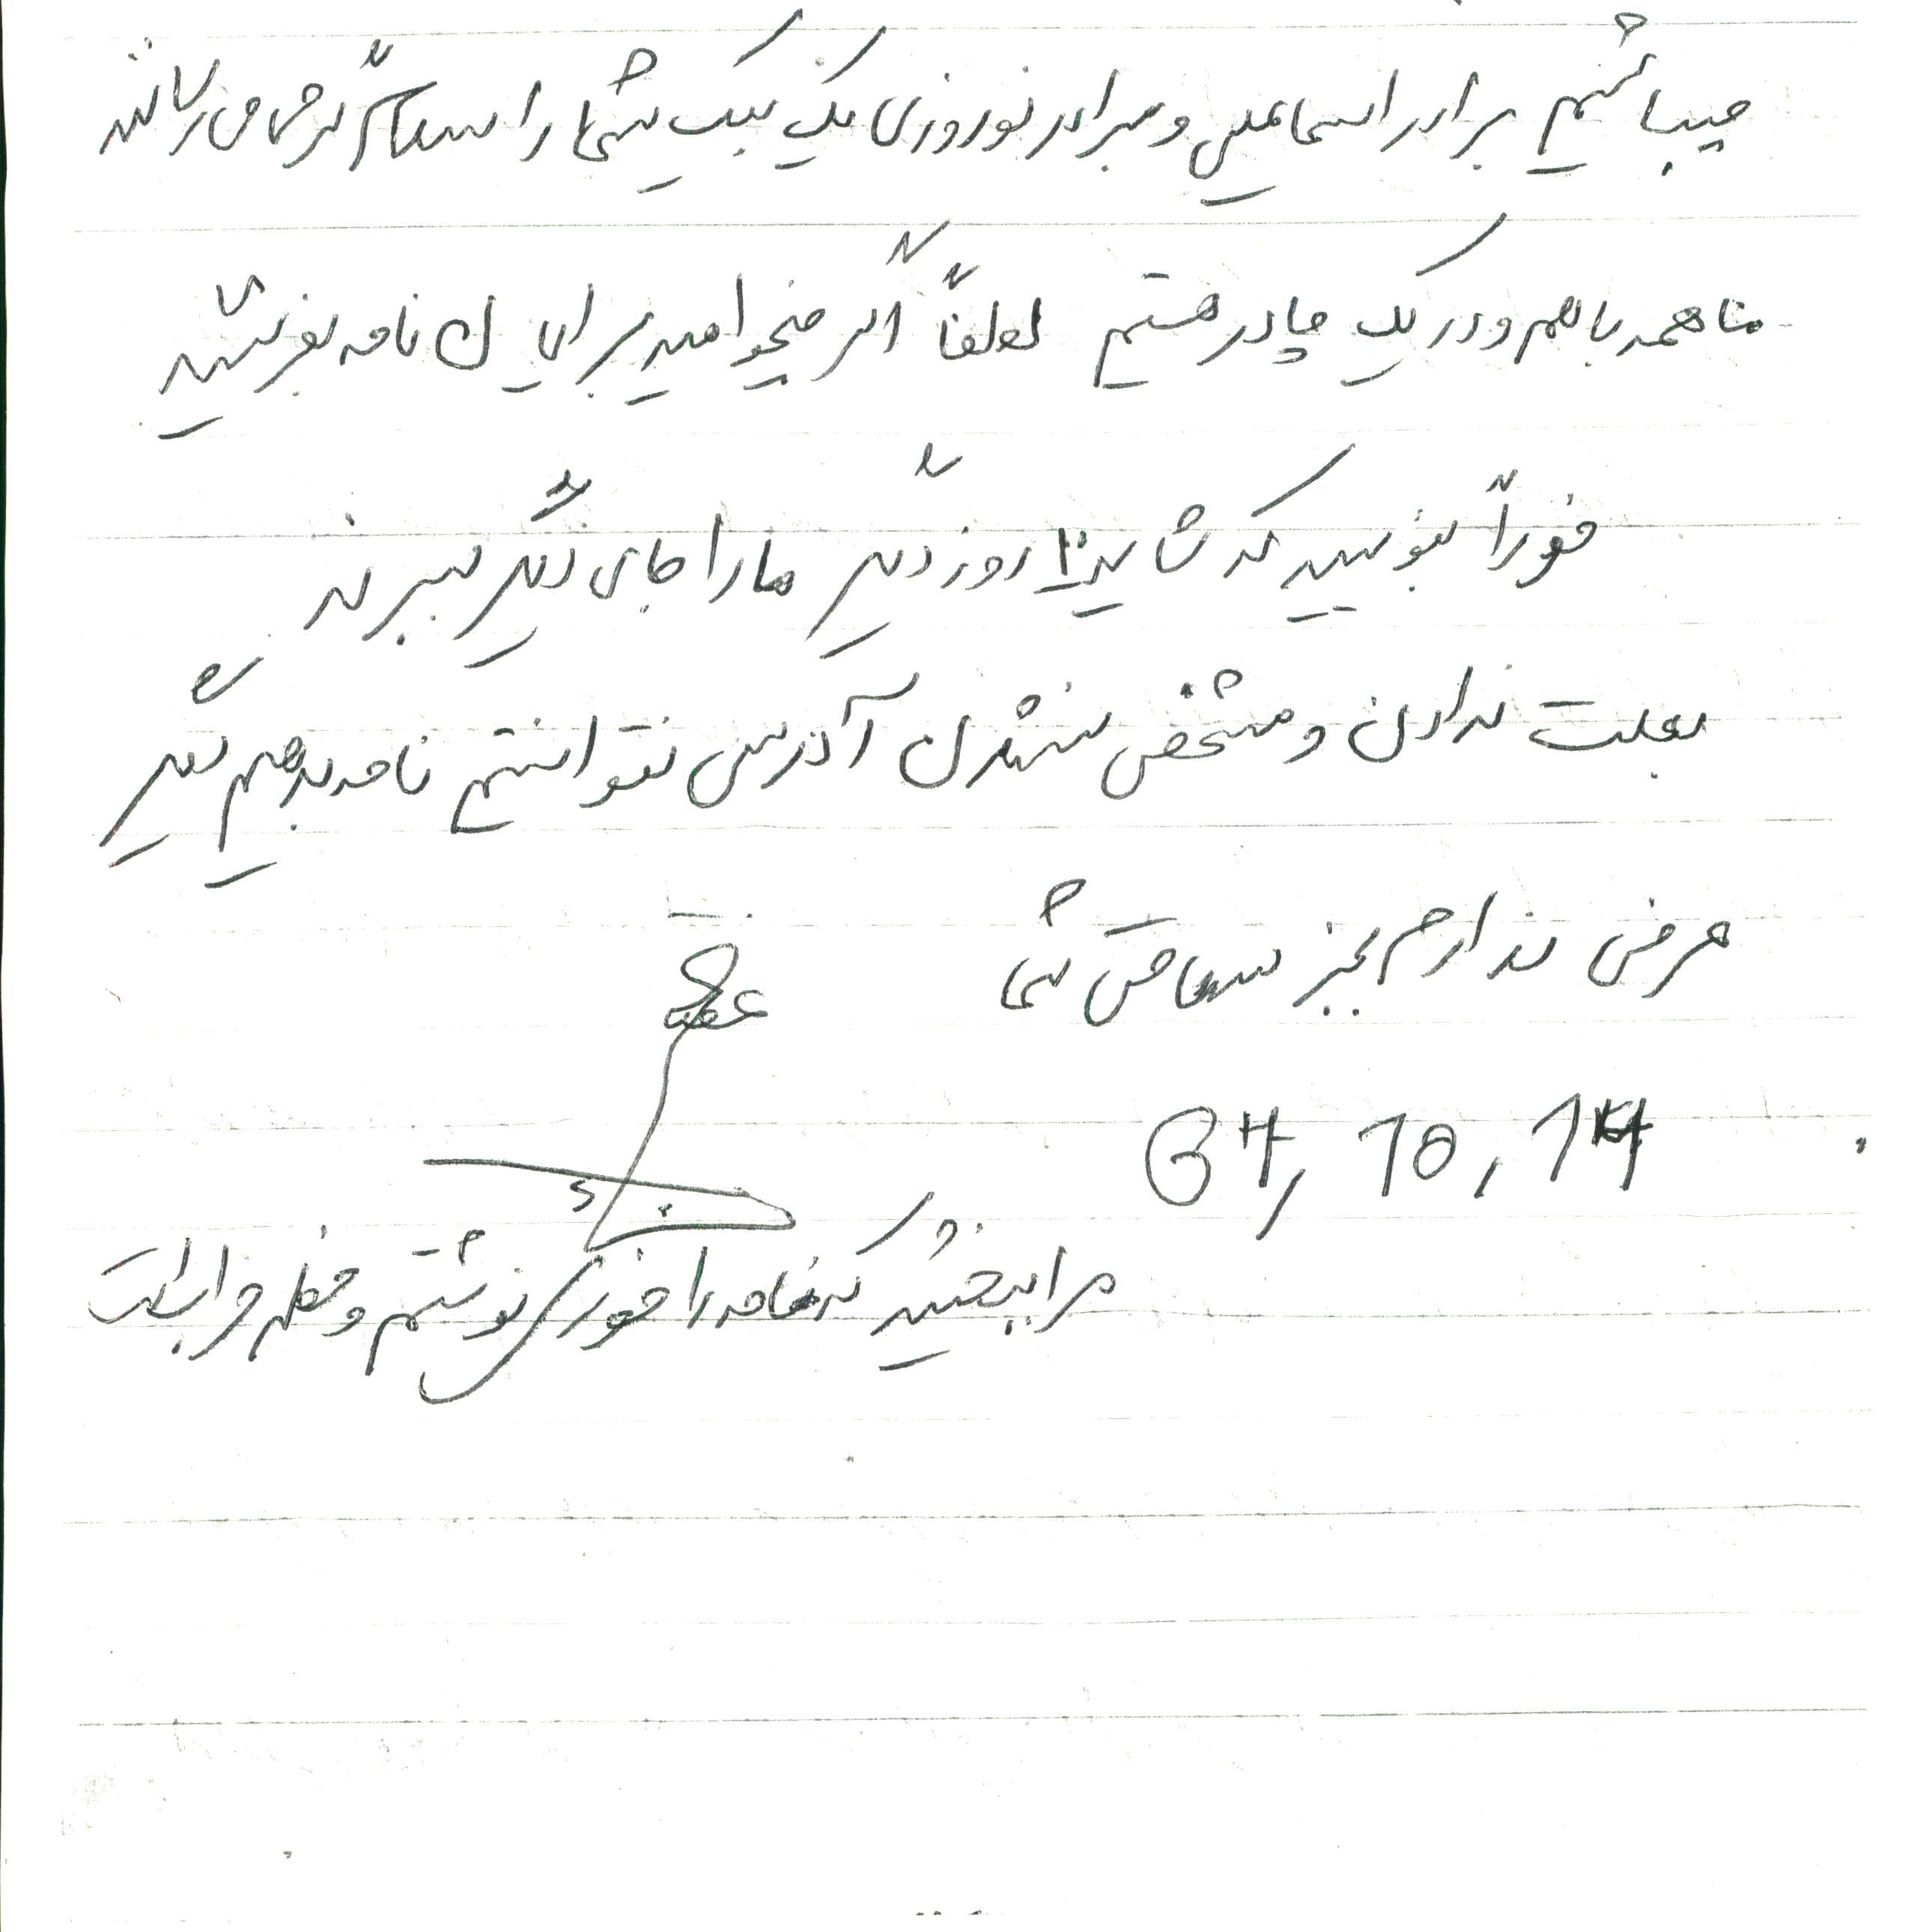 میباشیم برادر اسماعیلی و برادر نوروزی یک یک شما را سلام گرم می رسانند
ما همه با هم و در یک چادر هستیم لطفاً اگر میخواهید برایم نامه بفرستید
فوراً بنویسید که شاید ۲۰ روز دیگر ما را جای دیگر میبرند
بعلت نداشتن و مشخص نشدن آدرس نتوانستم نامه بدهم دیگر
عرضی ندارم بجز سلامتی شما
64, 10, 14
مرا ببخشید که نامه را خودم نوشتم و خطم خراب است